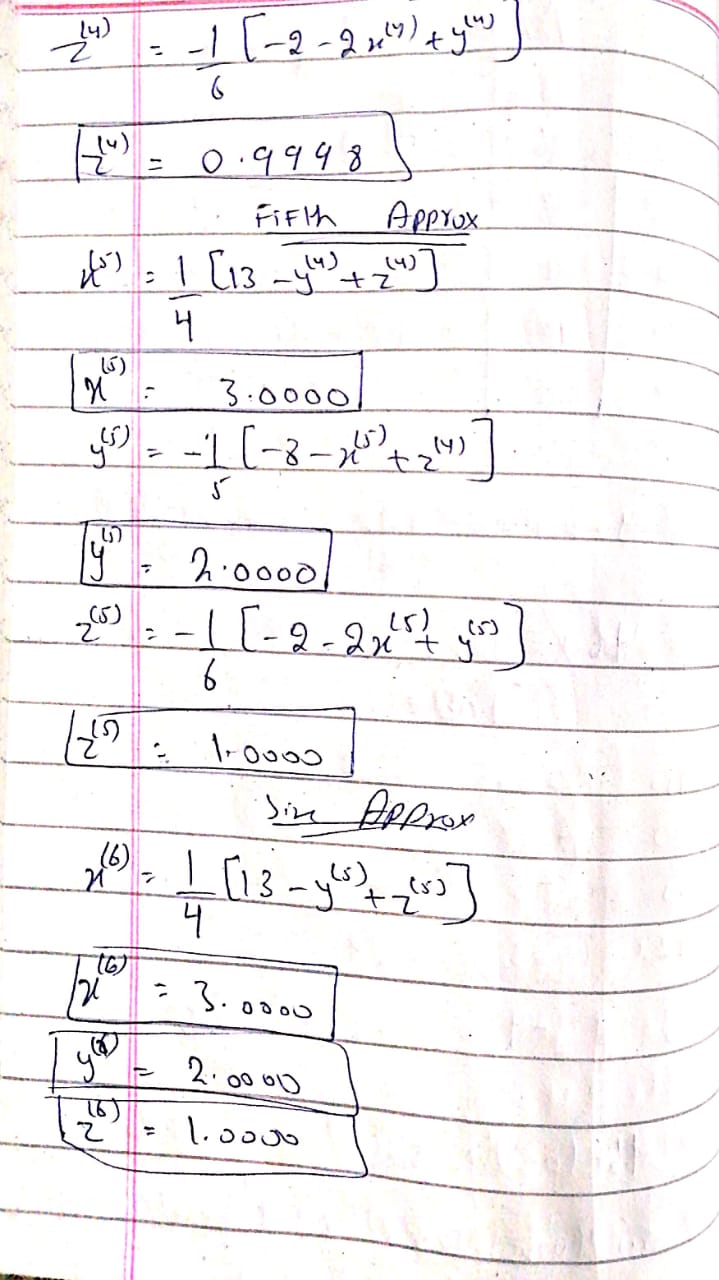 z^(4) = -1/6 [-2 - 2x^(4) + y^(4)]
z^(4) = 0.9998
Fifth Approx
x^(5) = 1/4 [13 - y^(4) + z^(4)]
x^(5) = 3.0000
y^(5) = -1/5 [-8 - x^(5) + z^(4)]
y^(5) = 2.0000
z^(5) = -1/6 [-2 - 2x^(5) + y^(5)]
z^(5) = 1.0000
Six Approx
x^(6) = 1/4 [13 - y^(5) + z^(5)]
x^(6) = 3.0000
y^(6) = 2.0000
z^(6) = 1.0000